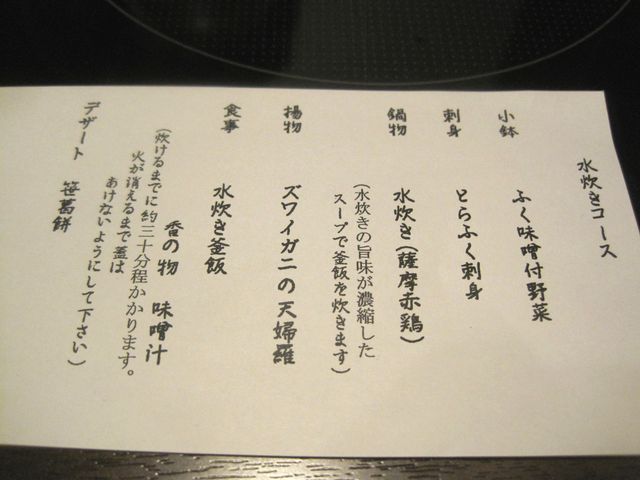 水炊きコース
小鉢 ふく味噌付野菜
刺身 とらふく刺身
鍋物 水炊き(薩摩赤鶏)
(水炊きの旨味が濃縮した
スープで釜飯を炊きます)
揚物 ズワイガニの天婦羅
食事 水炊き釜飯
香の物 味噌汁
(炊けるまでに約三十分程かかります。
火が消えるまで蓋は
あけないようにして下さい)
デザート 笹葛餅